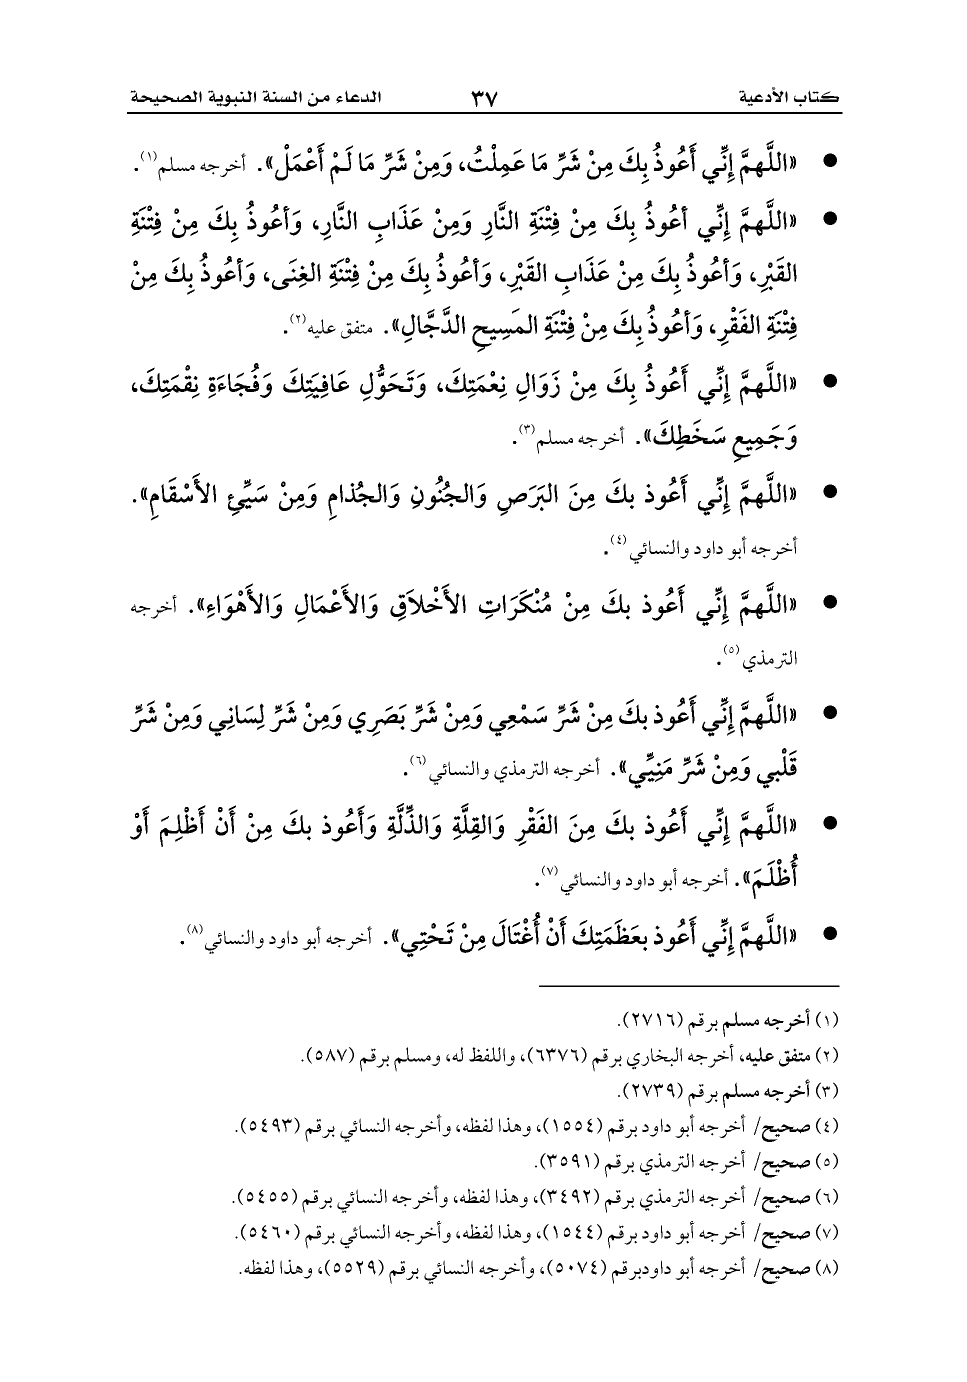 كتاب الأدعية ٣٧ الدعاء من السنة النبوية الصحيحة
● «اللَّهمَّ إنِّي أَعُوذُ بِكَ مِنْ شَرِّ مَا عَمِلْتُ، وَمِنْ شَرِّ مَا لَمْ أَعْمَلْ». أخرجه مسلم(١).
● «اللَّهمَّ إنِّي أعُوذُ بِكَ مِنْ فِتْنَةِ النَّارِ وَمِنْ عَذَابِ النَّارِ، وَأعُوذُ بِكَ مِنْ فِتْنَةِ
القَبْرِ، وَأعُوذُ بِكَ مِنْ عَذَابِ القَبْرِ، وَأعُوذُ بِكَ مِنْ فِتْنَةِ الغِنَى، وَأعُوذُ بِكَ مِنْ
فِتْنَةِ الفَقْرِ، وَأعُوذُ بِكَ مِنْ فِتْنَةِ المَسِيحِ الدَّجَّالِ». متفق عليه(٢).
● «اللَّهمَّ إنِّي أَعُوذُ بِكَ مِنْ زَوَالِ نِعْمَتِكَ، وَتَحَوُّلِ عَافِيَتِكَ وَفُجَاءَةِ نِقْمَتِكَ،
وَجَمِيعِ سَخَطِكَ». أخرجه مسلم(٣).
● «اللَّهمَّ إنِّي أَعُوذ بكَ مِنَ البَرَصِ وَالجُنُونِ وَالجُذامِ وَمِنْ سَيِّئِ الأَسْقَامِ».
أخرجه أبو داود والنسائي(٤).
● «اللَّهمَّ إنِّي أَعُوذ بكَ مِنْ مُنْكَرَاتِ الأَخْلاَقِ وَالأَعْمَالِ وَالأَهْوَاءِ». أخرجه
الترمذي(٥).
● «اللَّهمَّ إنِّي أَعُوذ بكَ مِنْ شَرِّ سَمْعِي وَمِنْ شَرِّ بَصَرِي وَمِنْ شَرِّ لِسَانِي وَمِنْ شَرِّ
قَلْبي وَمِنْ شَرِّ مَنِيِّي». أخرجه الترمذي والنسائي(٦).
● «اللَّهمَّ إنِّي أَعُوذ بكَ مِنَ الفَقْرِ وَالقِلَّةِ وَالذِّلَّةِ وَأَعُوذ بكَ مِنْ أَنْ أَظْلِمَ أَوْ
أُظْلَمَ». أخرجه أبو داود والنسائي(٧).
● «اللَّهمَّ إنِّي أَعُوذ بعَظَمَتِكَ أَنْ أُغْتَالَ مِنْ تَحْتِي». أخرجه أبو داود والنسائي(٨).
(١) أخرجه مسلم برقم (٢٧١٦).
(٢) متفق عليه، أخرجه البخاري برقم (٦٣٧٦)، واللفظ له، ومسلم برقم (٥٨٧).
(٣) أخرجه مسلم برقم (٢٧٣٩).
(٤) صحيح/ أخرجه أبو داود برقم (١٥٥٤)، وهذا لفظه، وأخرجه النسائي برقم (٥٤٩٣).
(٥) صحيح/ أخرجه الترمذي برقم (٣٥٩١).
(٦) صحيح/ أخرجه الترمذي برقم (٣٤٩٢)، وهذا لفظه، وأخرجه النسائي برقم (٥٤٥٥).
(٧) صحيح/ أخرجه أبو داود برقم (١٥٤٤)، وهذا لفظه، وأخرجه النسائي برقم (٥٤٦٠).
(٨) صحيح/ أخرجه أبو داودبرقم (٥٠٧٤)، وأخرجه النسائي برقم (٥٥٢٩)، وهذا لفظه.